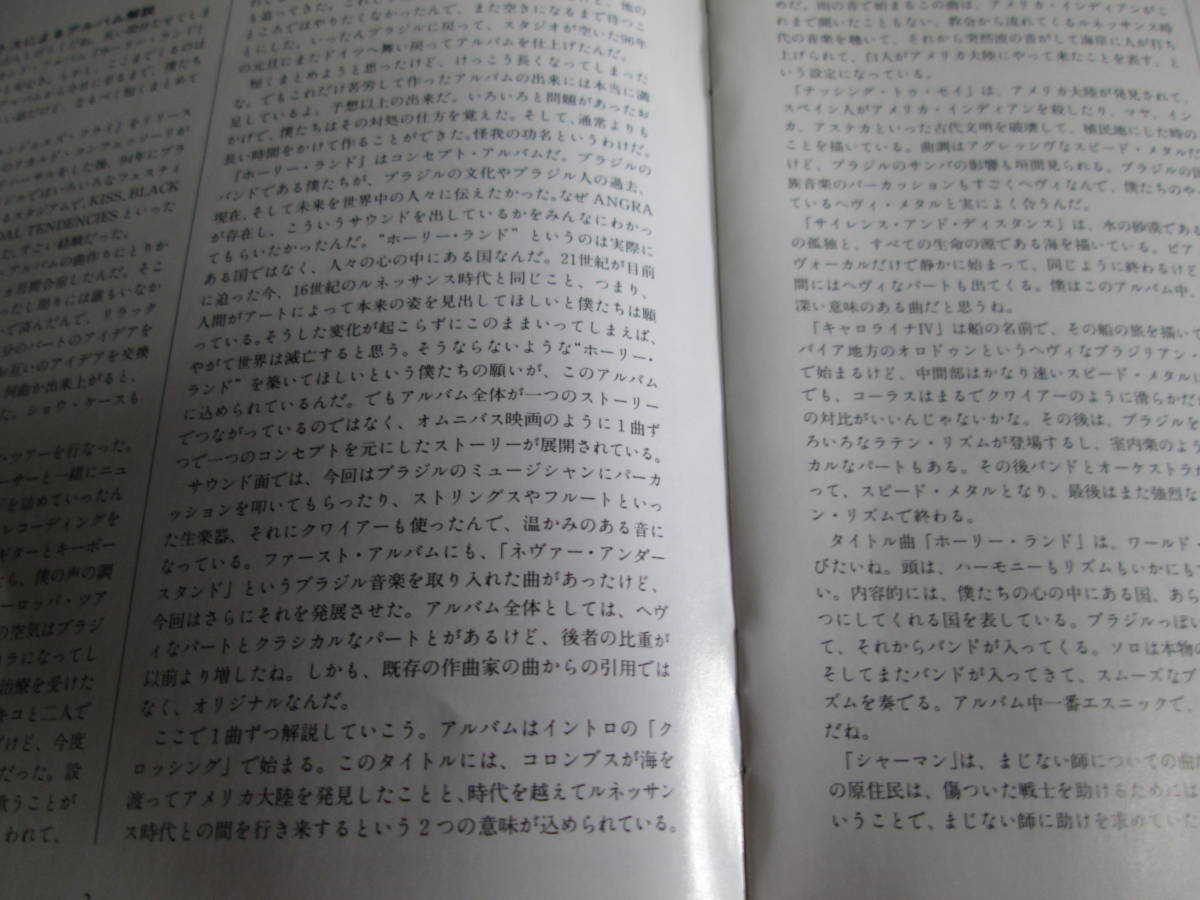 スによるアルバム解説
ンジェルズ・クライ』をリリース
のリカルド・コンフェソーリが
でリハーサルをした後、94年にブラ
ジルではいろいろなフェスティ
るスタジアムで、KISS, BLACK
DAL TENDENCIES といった
た。すごい経験だった。
、アルバムの曲作りにとりか
ヵ月間合宿したんだ。そこ
ったし周りには誰もいなか
で済んだんで、リラック
分のパートのアイデアを
お互いのアイデアを交換
何曲か出来上がると、
た。ショウ・ケースも
・ツアーを行なった。
ーサーと一緒にニュ
を詰めていったん
レコーディングを
ギターとキーボー
ら、僕の声の調
ーロッパ・ツア
の空気はブラジ
カラになってし
治療を受けた
キコと二人で
けど、今度
だった。設
歌うことが
われて、
も追ってきた。
まこへではやりたくなかったんで、また空きになるまで待つこ
とにした。いったんブラジルに戻って、スタジオが空いた96年
の元旦にまたドイツへ舞い戻ってアルバムを仕上げたんだ。
短くまとめようと思ったけど、けっこう長くなってしまった
な。でもこれだけ苦労して作ったアルバムの出来には本当に満
足しているよ。予想以上の出来だ。いろいろと問題があったお
かげで、僕たちはその対処の仕方を覚えた。そして、通常よりも
長い時間をかけて作ることができた。怪我の功名というわけだ。
『ホーリー・ランド』はコンセプト・アルバムだ。ブラジルの
バンドである僕たちが、ブラジルの文化やブラジル人の過去、
現在、そして未来を世界中の人々に伝えたかった。なぜ ANGRA
が存在し、こういうサウンドを出しているかをみんなにわかっ
てもらいたかったんだ。“ホーリー・ランド” というのは実際に
ある国ではなく、人々の心の中にある国なんだ。21世紀が目前
に迫った今、16世紀のルネッサンス時代と同じこと、つまり、
人間がアートによって本来の姿を見出してほしいと僕たちは願
っている。そうした変化が起こらずにこのままいってしまえば、
やがて世界は滅亡すると思う。そうならないような“ホーリー・
ランド”を築いてほしいという僕たちの願いが、このアルバム
に込められているんだ。でもアルバム全体が一つのストーリー
でつながっているのではなく、オムニバス映画のように1曲ず
つで一つのコンセプトを元にしたストーリーが展開されている。
サウンド面では、今回はブラジルのミュージシャンにパーカ
ッションを叩いてもらったり、ストリングスやフルートといっ
た生楽器、それにクワイアーも使ったんで、温かみのある音に
なっている。ファースト・アルバムにも、「ネヴァー・アンダー
スタンド」というブラジル音楽を取り入れた曲があったけど、
今回はさらにそれを発展させた。アルバム全体としては、ヘヴ
ィなパートとクラシカルなパートとがあるけど、後者の比重が
以前より増したね。しかも、既存の作曲家の曲からの引用では
なく、オリジナルなんだ。
ここで1曲ずつ解説していこう。アルバムはイントロの「ク
ロッシング」で始まる。このタイトルには、コロンブスが海を
渡ってアメリカ大陸を発見したことと、時代を越えてルネッサン
ス時代との間を行き来するという2つの意味が込められている。
めだ。雨の音で始まるこの曲は、アメリカ・インディアンがこ
れまで聞いたこともない、教会から流れてくるルネッサンス時
代の音楽を聴いて、それから突然波の音がして海岸に人が打ち
上げられて、白人がアメリカ大陸にやって来たことを表す、と
いう設定になっている。
「ナッシング・トゥ・セイ」は、アメリカ大陸が発見されて、
スペイン人がアメリカ・インディアンを殺したり、マヤ、イン
カ、アステカといった古代文明を破壊して、植民地にした時の
ことを描いている。曲調はアグレッシヴなスピード・メタルだ
けど、ブラジルのサンバの影響も垣間見られる。ブラジルの民
族音楽のパーカッションもすごくヘヴィなんで、僕たちのや
ているヘヴィ・メタルと実によく合うんだ。
「サイレンス・アンド・ディスタンス」は、水の砂漠である
の孤独と、すべての生命の源である海を描いている。ピア
ヴォーカルだけで静かに始まって、同じように終わるけど
間にはヘヴィなパートも出てくる。僕はこのアルバム中、
深い意味のある曲だと思うね。
「キャロライナIV」は船の名前で、その船の旅を描いて
バイア地方のオロドゥンというヘヴィなブラジリアン・
で始まるけど、中間部はかなり速いスピード・メタルに
でも、コーラスはまるでクワイアーのように滑らかだ
の対比がいいんじゃないかな。その後は、ブラジルを
ろいろなラテン・リズムが登場するし、室内楽のよう
カルなパートもある。その後バンドとオーケストラが
って、スピード・メタルとなり、最後はまた強烈な
ン・リズムで終わる。
タイトル曲「ホーリー・ランド」は、ワールド・
びたいね。頭は、ハーモニーもリズムもいかにも
い。内容的には、僕たちの心の中にある国、あら
つにしてくれる国を表している。ブラジルっぽい
て、それからバンドが入ってくる。ソロは本物の
そしてまたバンドが入ってきて、スムーズなブ
ズムを奏でる。アルバム中一番エスニックで、
だね。
「シャーマン」は、まじない師についての曲
の原住民は、傷ついた戦士を助けるためには
いうことで、まじない師に助けを求めていた